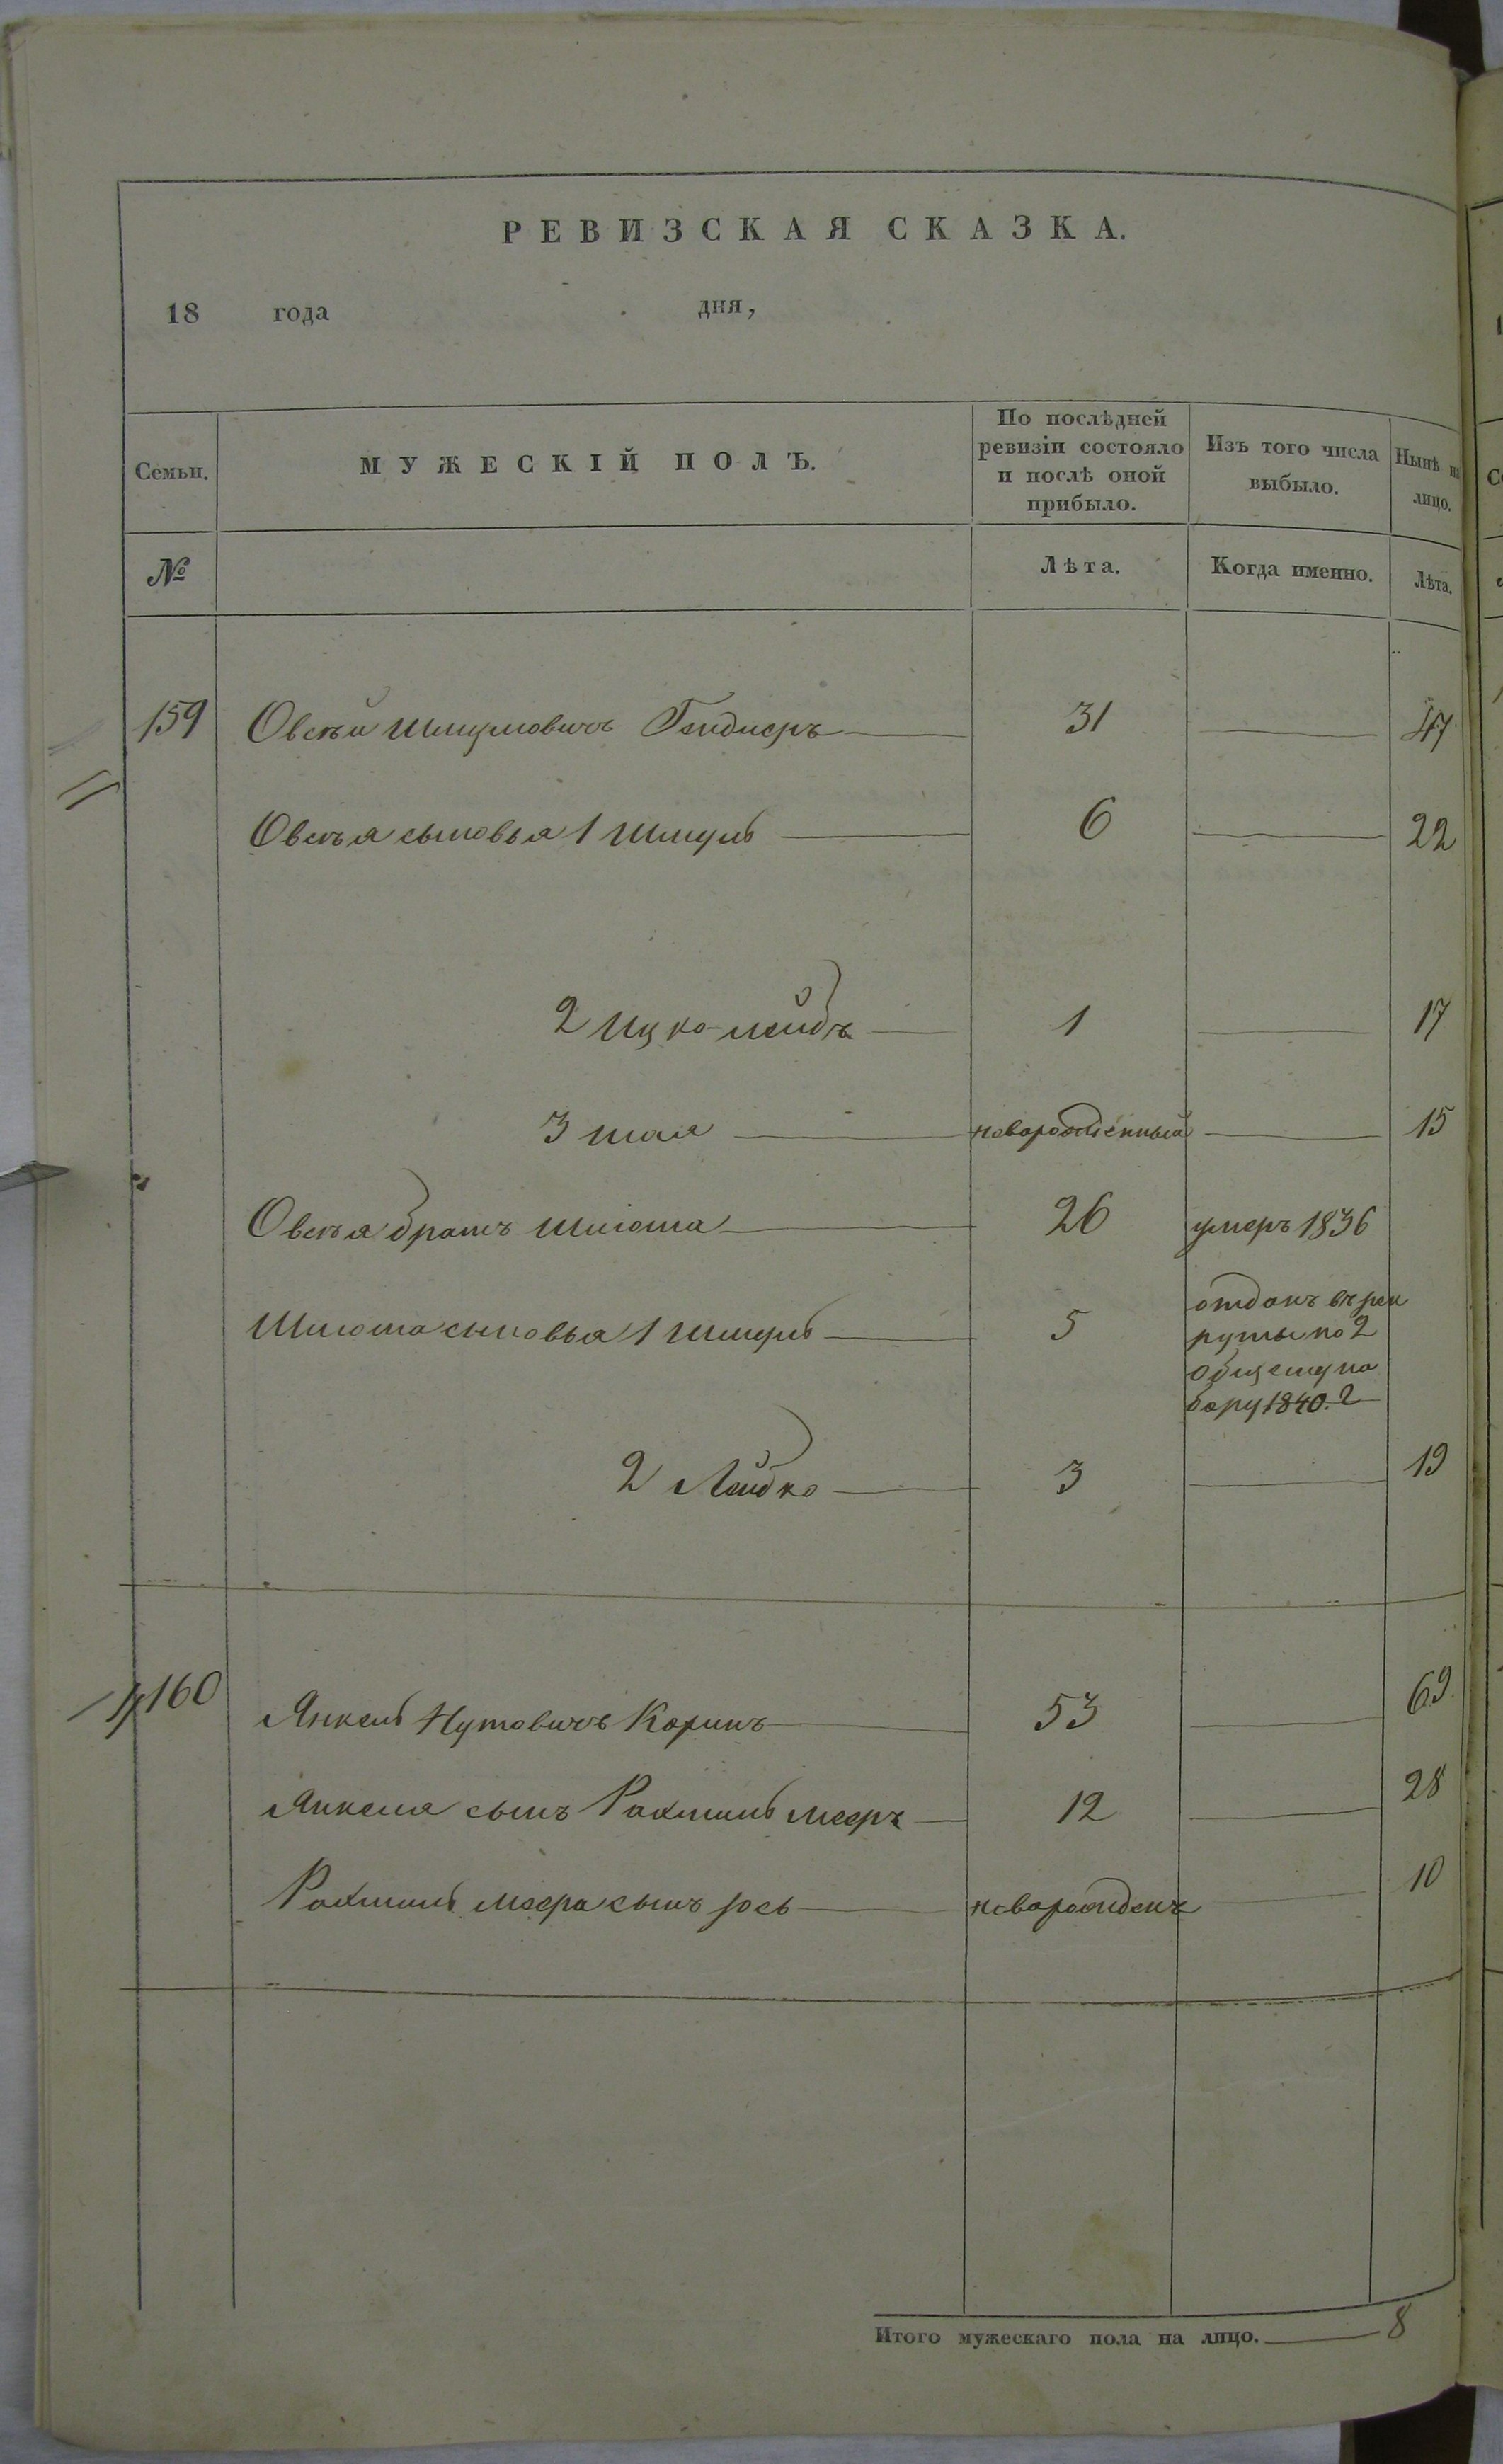 РЕВИЗСКАЯ СКАЗКА.
18 года дня,
Семьи. МУЖЕСКІЙ ПОЛЪ. По послѣдней ревизіи состояло и послѣ оной прибыло. Изъ того числа выбыло. Нынѣ на лицо.
№ Лѣта. Когда именно. Лѣта.
159 Овсѣй Шмуловичъ 31 47
Овсѣя сыновья 1 Шмуль 6 22
2 Ицко-Лейбъ 1 17
3 Шая новорожденный 15
Овсѣя братъ Шлюма 26 умеръ 1836
Шлюма сыновья 1 Шмуль 5 отданъ въ рек
руты по 2
общему на
бору 1840. г
2 Лейбко 3 19
160 Янкель Нутовичъ Коринъ 53 69
Янкеля сынъ Рахмиль Мееръ 12 28
Рахмиль Меера сынъ Іось новорожденъ 10
Итого мужескаго пола на лицо. 8